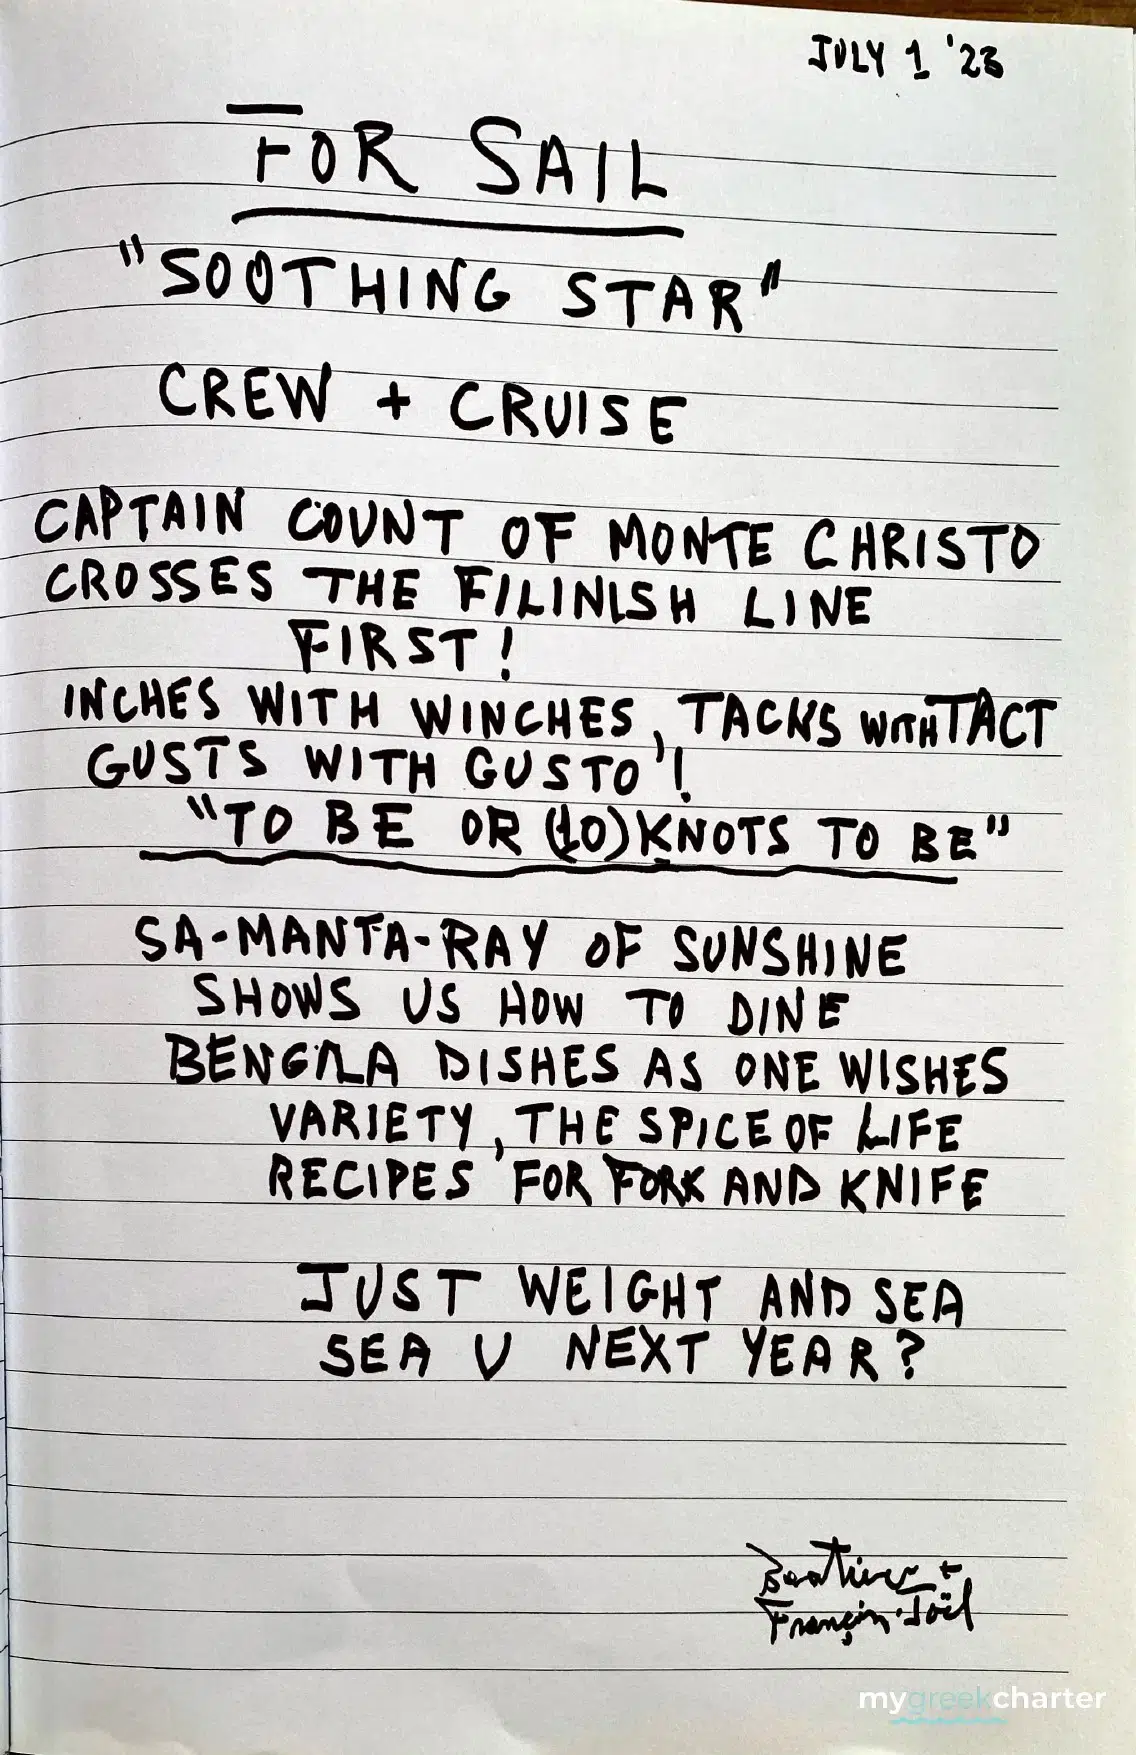 JULY 1 '23
FOR SAIL
"SOOTHING STAR"
CREW + CRUISE
CAPTAIN COUNT OF MONTE CHRISTO
CROSSES THE FILINISH LINE
FIRST!
INCHES WITH WINCHES, TACKS WITH TACT
GUSTS WITH GUSTO'!
"TO BE OR (10) KNOTS TO BE"
SA-MANTA-RAY OF SUNSHINE
SHOWS US HOW TO DINE
DISHES AS ONE WISHES
VARIETY, THE SPICE OF LIFE
RECIPES FOR FORK AND KNIFE
JUST WEIGHT AND SEA
SEA U NEXT YEAR?
mygreekcharter